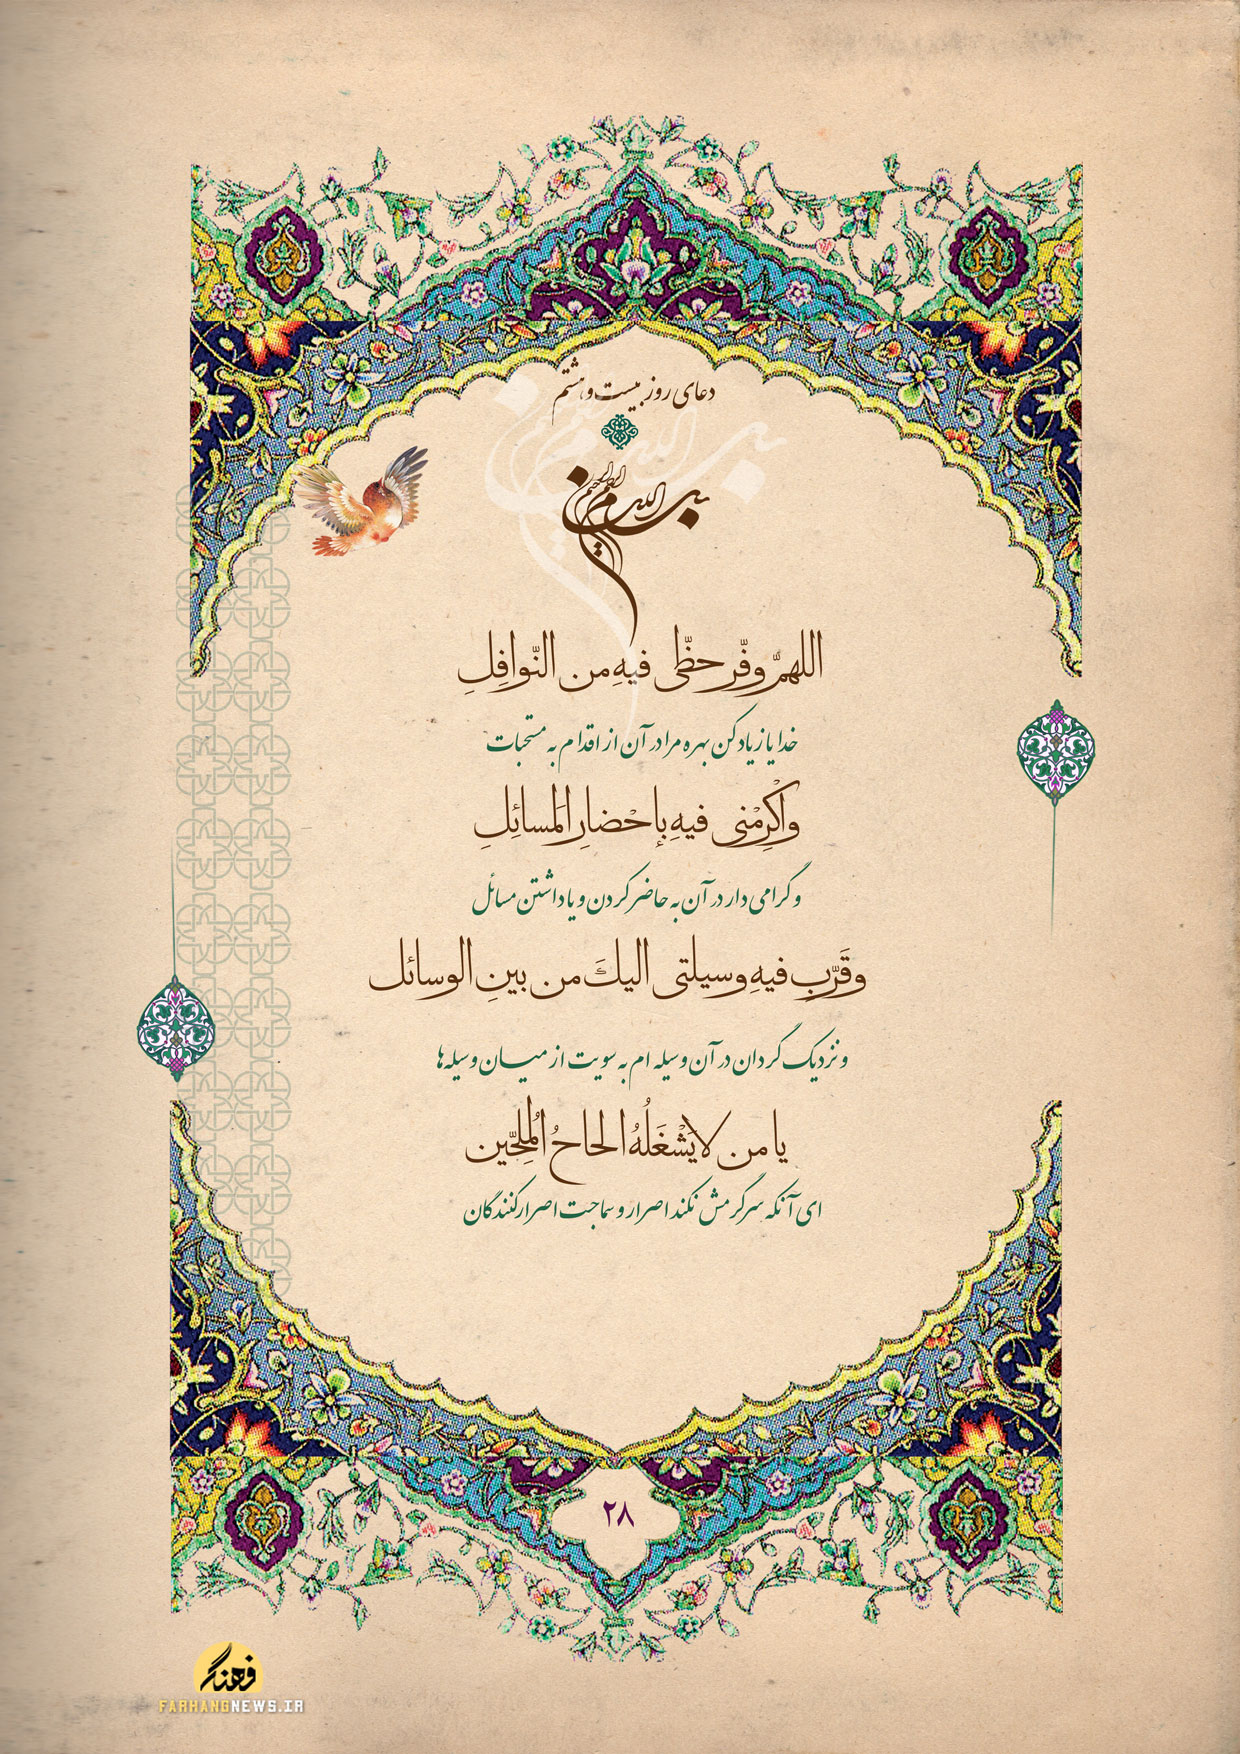 دعای روز بیست و هشتم
بسم الله الرحمن الرحیم
اللهمّ وفّر حظّی فیهِ من النّوافِلِ
خدایا زیاد کن بهره مرا در آن از اقدام به مستحبات
واکْرِمْنی فیهِ بإحْضارِ المَسائِلِ
و گرامی دار در آن به حاضر کردن و یاداشتن مسائل
وقَرّبِ فیهِ وسیلتی الیكَ من بینِ الوسائل
و نزدیک گردان در آن وسیله ام به سویت از میان وسیله ها
یا من لا یَشْغَلُهُ الحاحُ المُلِحّین
ای آنکه سرگرمش نکند اصرار و سماجت اصرارکنندگان
۲۸
فرهنگ
FARHANGNEWS.IR